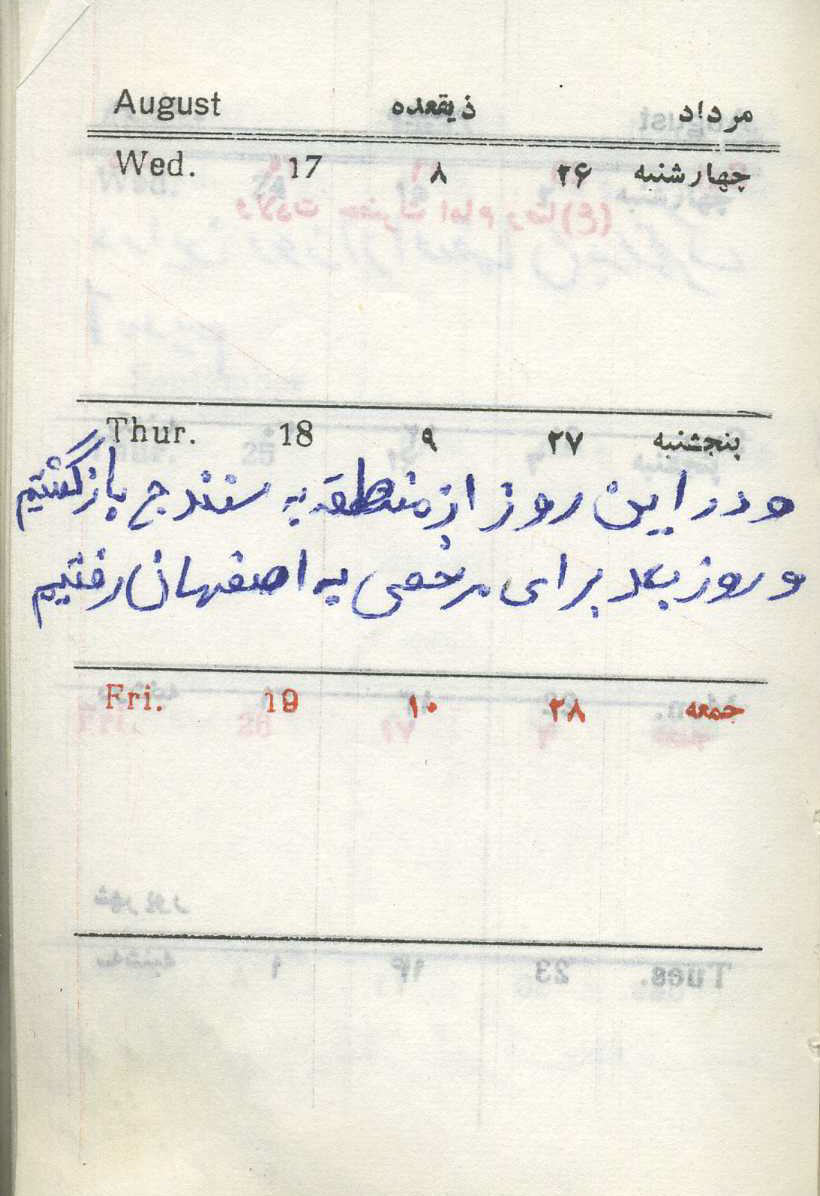 August ذیقعده مرداد
Wed. 17 ۸ ۲۶ چهارشنبه
Thur. 18 ۹ ۲۷ پنجشنبه
و در این روز از منطقه به سنندج بازگشتیم
و روز بعد برای مرخصی به اصفهان رفتیم
Fri. 19 ۱۰ ۲۸ جمعه